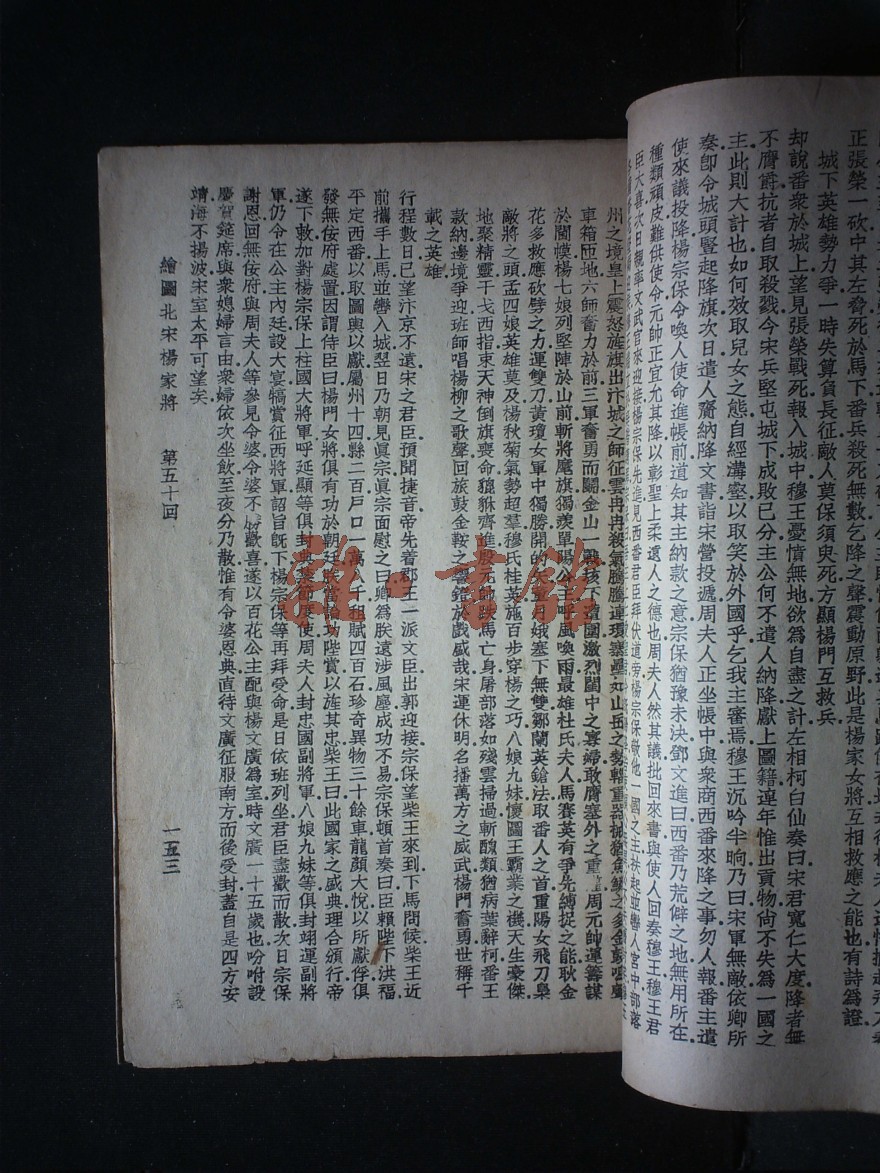 正張榮一砍中其左脅死於馬下番兵殺死無數乞降之聲震動原野此是楊家女將互相救應之能也有詩爲證
城下英雄勢力爭一時失算負長征敵人莫保須臾死方顯楊門互救兵
却說番衆於城上望見張榮戰死報入城中穆王憂憤無地欲爲自盡之計左相柯白仙奏曰宋君寬仁大度降者無
不膺爵抗者自取殺戮今宋兵堅屯城下成敗已分主公何不遣人納降獻上圖籍連年惟出貢物尙不失爲一國之
主此則大計也如何效取兒女之態自經溝壑以取笑於外國乎乞我主審焉穆王沉吟半晌乃曰宋軍無敵依卿所
奏卽令城頭豎起降旗次日遣人齎納降文書詣宋營投遞周夫人正坐帳中與衆商西番來降之事勿人報番主遣
使來議投降楊宗保令喚人使命進帳前道知其主納款之意宗保猶豫未決鄧文進曰西番乃荒僻之地無用所在
種類頑皮難供使令元帥正宜允其降以彰聖上柔遠人之德也周夫人然其議批回來書與使人回奏穆王穆王君
臣大喜次日親率文武官來迎接楊宗保先進見西番君臣拜伏道旁楊宗保敬他一國之主扶起並轡人宮中部落
州之境皇上震怒旌旗出汴城之師征雲冉冉殺氣騰騰連環塞壘如山岳之勢輜重器械猶魚鱗之多金鼓鳴聲
車箱匝地六師奮力於前三軍奮勇而鬭金山一戰垓下遭圍激烈閨中之寡婦敢膺塞外之重周元帥運籌謀
於闖幙楊七娘列堅陣於山前斬將麾旗獨羨單陽公主呼風喚雨最雄杜氏夫人馬賽英有爭先縛捉之能耿金
花多救應砍劈之力運雙刀黃瓊女軍中獨勝開的矢董月娥塞下無雙鄒蘭英鎗法取番人之首重陽女飛刀梟
敵將之頭孟四娘英雄莫及楊秋菊氣勢超羣穆氏桂英施百步穿楊之巧八娘九妹懷圖王霸業之機天生豪傑
地聚精靈干戈西指束天神倒旗喪命貔貅齊進殷元帥跌馬亡身屠部落如殘雲掃過斬醜類猶病葉辭柯番王
款納邊境爭迎班師唱楊柳之歌聲回旅鼓金鞍之響鏗於戲威哉宋運休明名播萬方之威武楊門奮勇世稱千
載之英雄
行程數日已望汴京不遠宋之君臣預聞捷音帝先着郡王一派文臣出郭迎接宗保望柴王來到下馬問候柴王近
前攜手上馬並轡入城翌日乃朝見眞宗眞宗面慰之曰卿爲朕遠涉風塵成功不易宗保頓首奏曰臣賴陛下洪福
平定西番以取圖輿以獻屬州十四縣二百戶口一萬八千租賦四百石珍奇異物三十餘車龍顏大悅以所獻俘俱
發無佞府處置因謂侍臣曰楊門女將俱有功於朝廷朕當論功陛賞以旌其忠柴王曰此國家之盛典理合頒行帝
遂下敕加對楊宗保上柱國大將軍呼延顯等俱封典禁節度使周夫人封忠國副將軍八娘九妹等俱封翊運副將
軍仍令在公主內廷設大宴犒賞征西將軍詔旨旣下楊宗保等再拜受命是日依班列坐君臣盡歡而散次日宗保
謝恩回無佞府與周夫人等參見令婆令婆不勝歡喜遂以百花公主配與楊文廣爲室時文廣一十五歲也吩咐設
慶賀筵席與衆媳婦言由衆婦依次坐飲至夜分乃散惟有令婆恩典直待文廣征服南方而後受封蓋自是四方安
靖海不揚波宋室太平可望矣
繪圖北宋楊家將 第五十回 一五三